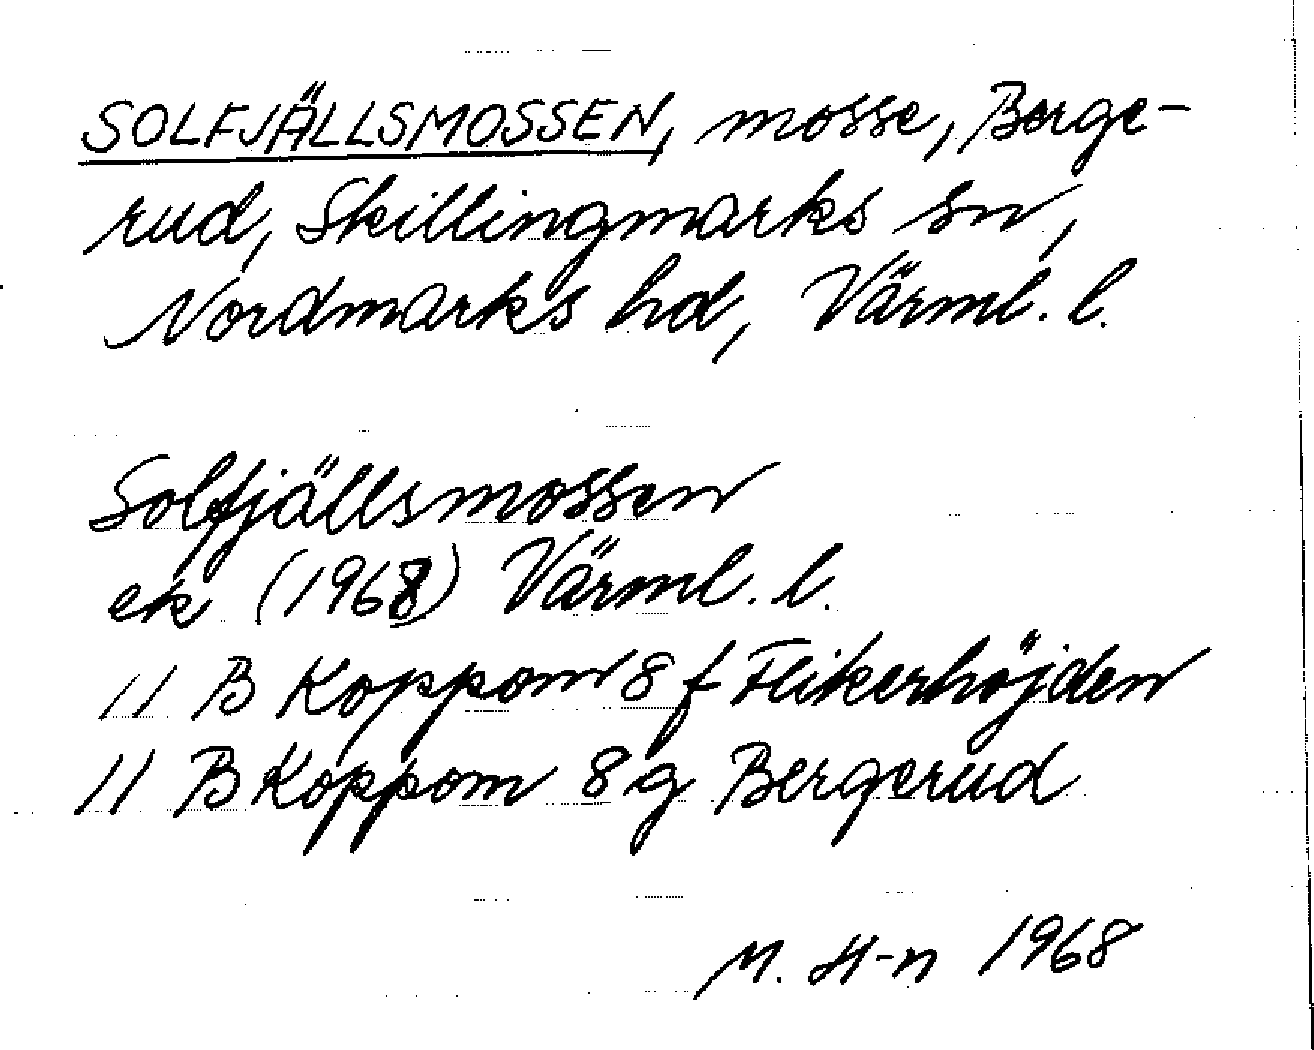 SOLFJÄLLSMOSSEN, mosse, Berge-
rud, Skillingmarks sn,
Nordmarks hd, Värml. l.
Solfjällsmossen
ek (1968) Värml. l.
11 B Koppom 8 f Flikerhöjden
11 B Koppom 8 g Bergerud
M. H-n 1968